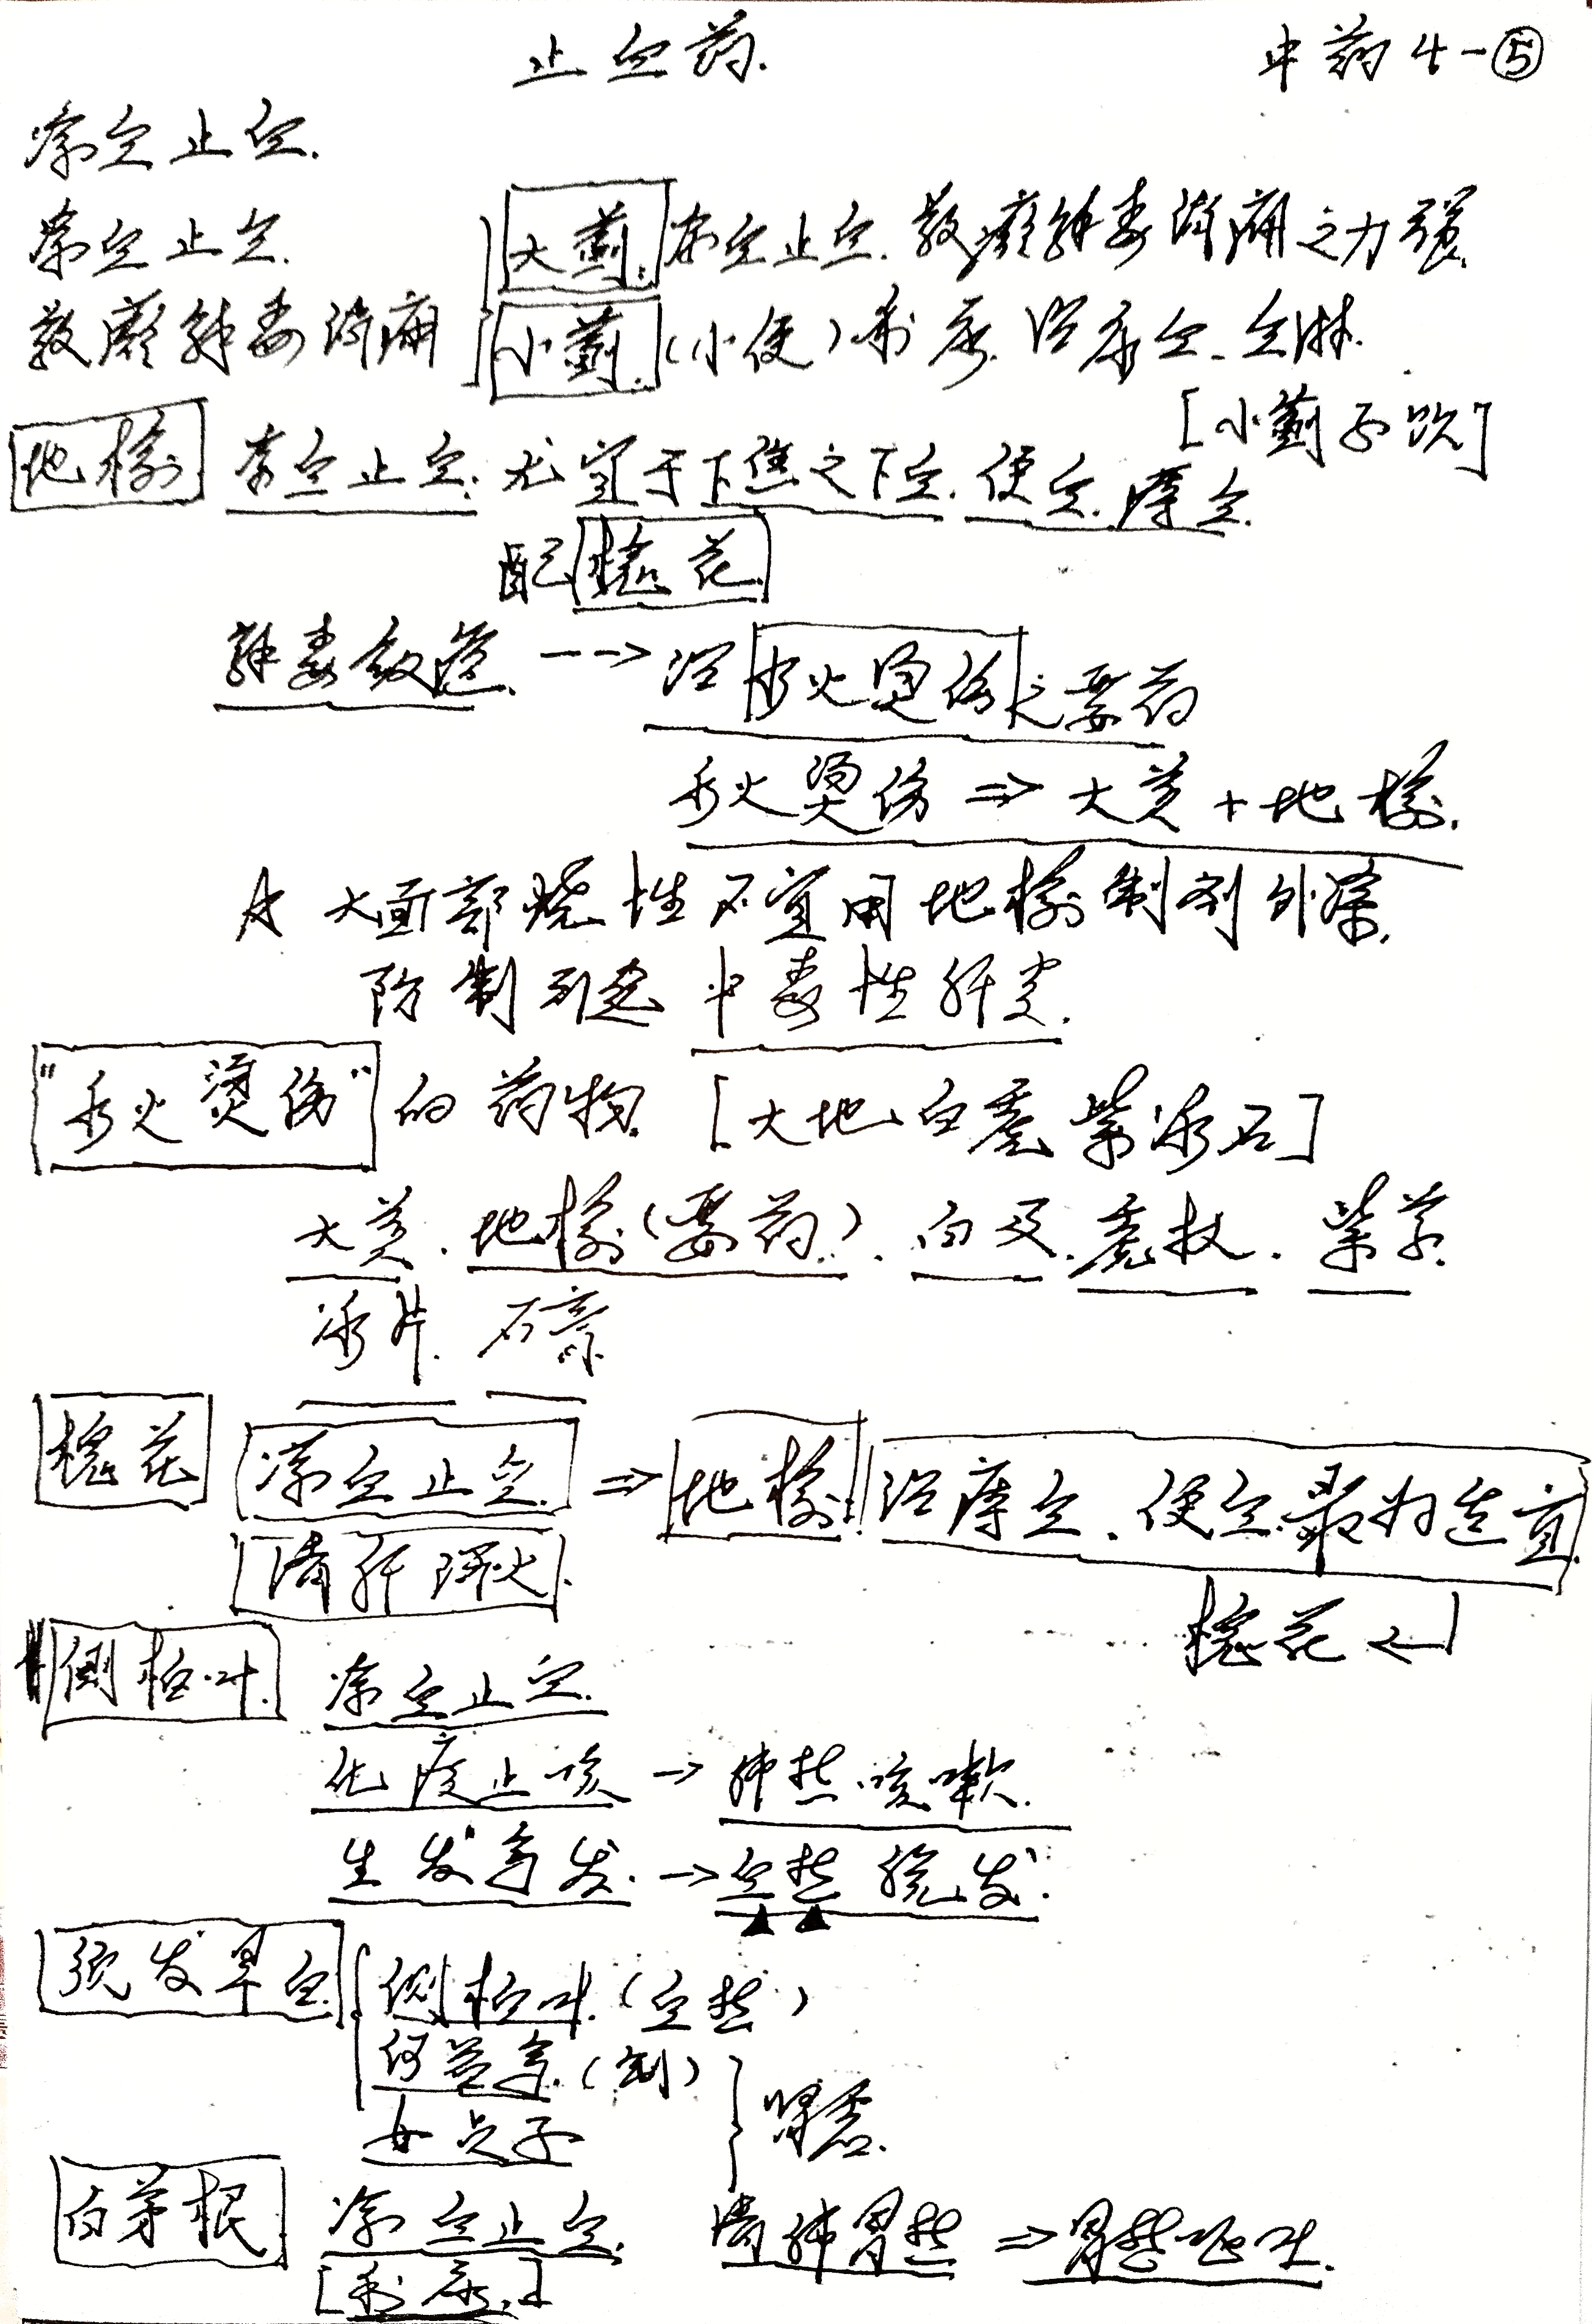 止血药. 中药4-⑤
凉血止血.
凉血止血. 大蓟. 凉血止血. 散瘀解毒消痈之力强.
散瘀解毒消痈 小蓟. (小便)利尿. 治尿血. 血淋.
[小蓟子饮]
地榆 凉血止血. 尤宜于下焦之下血. 便血. 痔血.
配槐花.
解毒敛疮. --→ 治水火烫伤之要药
水火烫伤 ⇒ 大黄 + 地榆.
大面部烧性不宜用地榆制剂外涂.
防制引起中毒性肝炎.
"水火烫伤"的药物. [大地白虎紫冰石]
大黄. 地榆(要药). 白及. 虎杖. 紫草.
冰片. 石膏
槐花 凉血止血. ⇒ 地榆. 治痔血. 便血. 最为适宜.
清肝泻火. 槐花 ←
侧柏叶. 凉血止血.
化痰止咳 → 肺热咳嗽.
生发乌发. → 血热脱发.
须发早白. 侧柏叶. (血热)
何首乌. (制)
女贞子 肾虚.
白茅根. 凉血止血. 清肺胃热 ⇒ 胃热呕吐.
[利尿.]